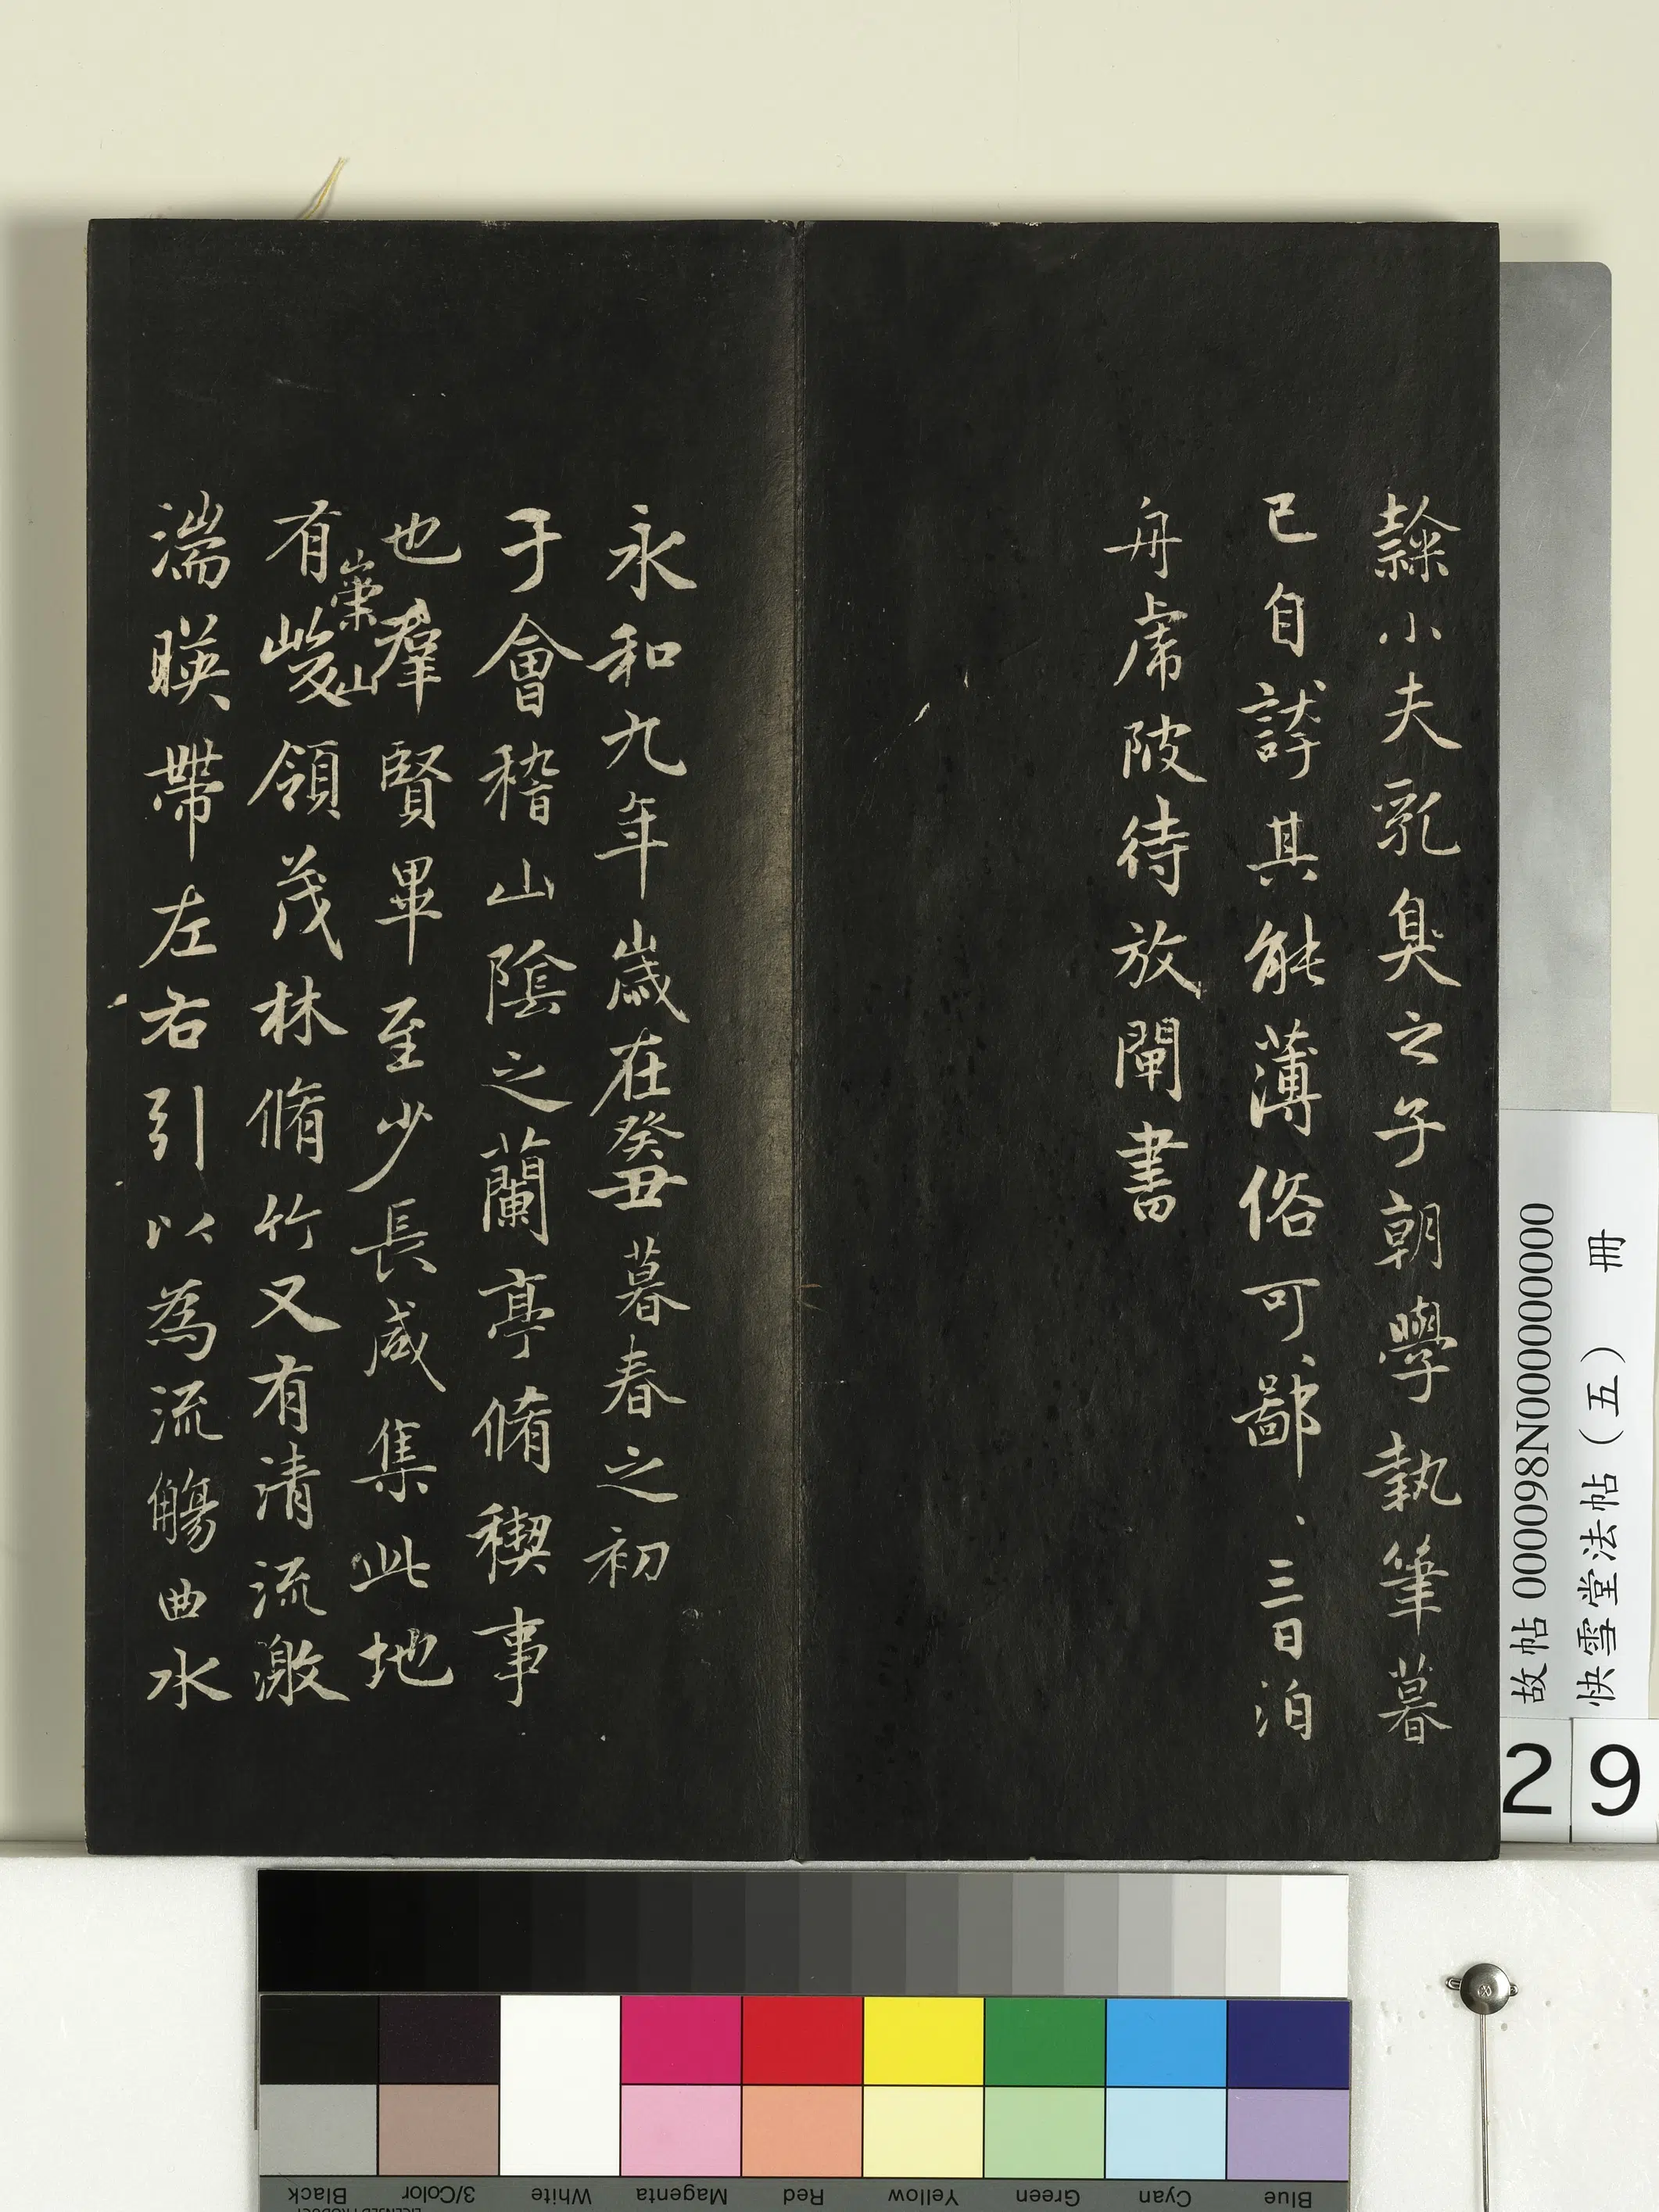 隸小夫乳臭之子朝學執筆暮
已自誇其能薄俗可鄙可鄙三日泊
舟虎陂待放閘書
永和九年歲在癸丑暮春之初
于會稽山陰之蘭亭脩稧事
也羣賢畢至少長咸集此地
有崇山峻領茂林脩竹又有清流激
湍暎帶左右引以為流觴曲水
故帖 000098N000000000
快雪堂法帖（五） 冊
29
Black
3/Color
White
Magenta
Red
Yellow
Green
Cyan
Blue